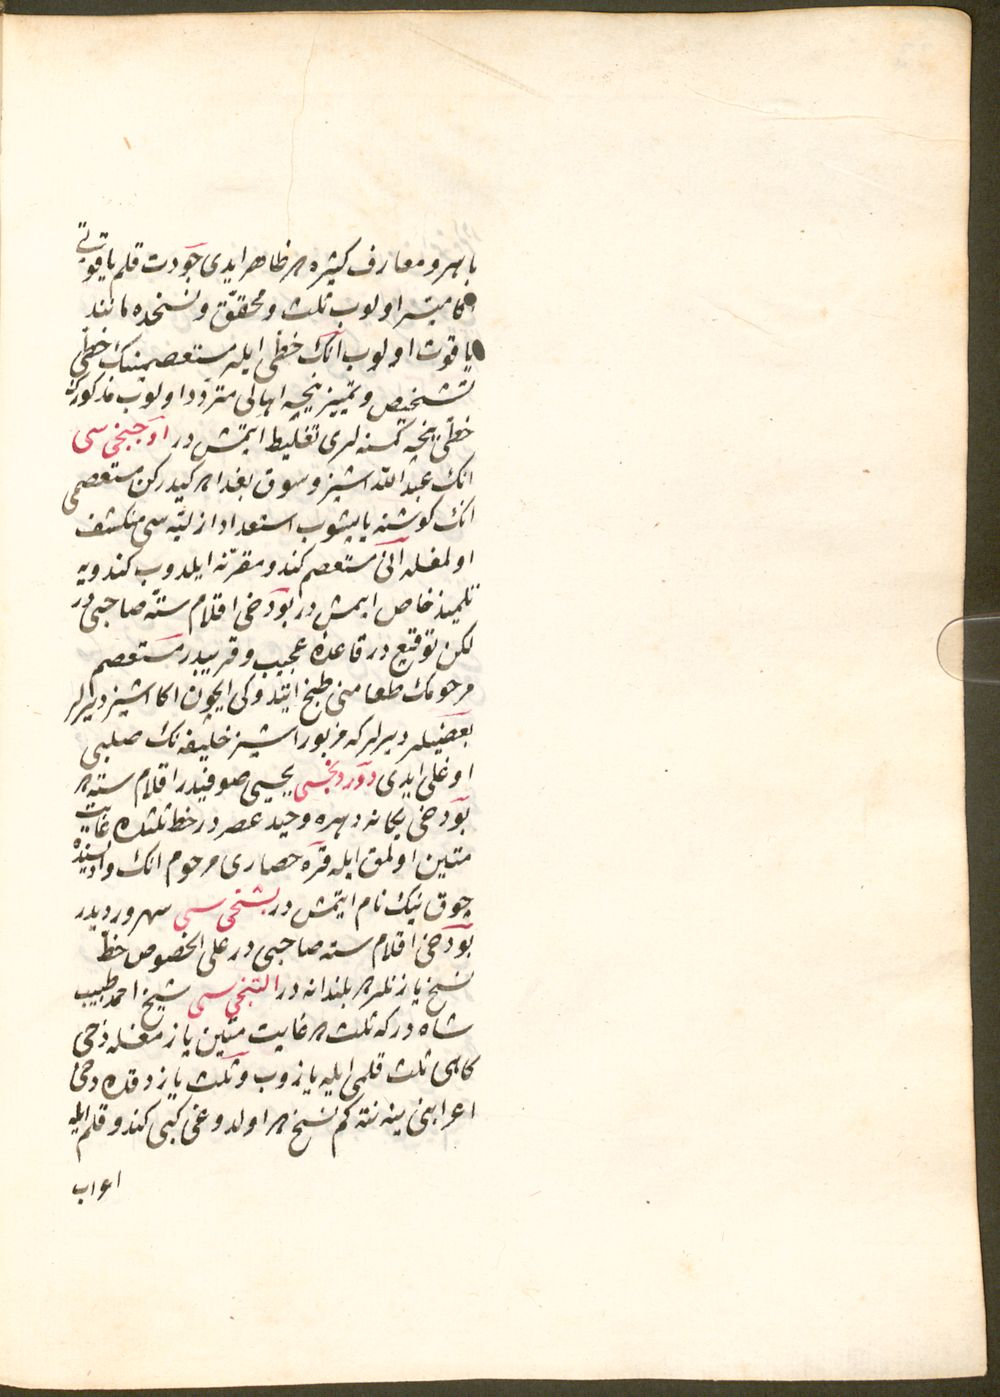 باهر و معارف کثیره ظاهر ایدی جودت قلم یاقوتی
میسر اولوب ثلث و محقق و نسخده مانند
یاقوت اولوب آنک خطی ایله مستعصمینک خطی
تشخیص و تمییز نیجه اهالی متردد اولوب مذکورک
خطی نیجه کمسنه لری تغلیط ایتمش در اوجنجی سی
انک عبد الله اشپز و سوق بغداده کیدرکن مستعصمی
انک کوشنه یاپیشوب استعداد ازلیه سی منکشف
اولمغله آنی مستعصم کندو مقرنه ایلدوب کندویه
تلمیذ خاص ایمش در بودخی اقلام سته صاحبی در
لکن توقیع در قاعده عجیب و قریبدر مستعصم
مرحومک طعامنی طبخ ایتدوکی ایچون اکا اشپز دیرلر
بعضیلر دیرلر که مزبور اشپز خلیفه نک صلبی
اوغلی ایدی دوردنجسی یحیی صوفیدر اقلام سته ده
بودخی یکانه دهره وحید عصر در خط ثلثده غایت
متین اولمق ایله قره حصاری مرحوم انک وادیسنده
چوق نیک نام ایتمش در بشنجی سی سهروردیدر
بودخی اقلام سته صاحبی در علی الخصوص خط
نسخ یازنلره بلندانه در التنجی سی شیخ احمد طبیب
شاه در که ثلث ده غایت متین یازمغله دخی
کاهی ثلث قلمی ایله یازوب و ثلث یازدقده دخی
اعرابنی ینه نته کم نسخ ده اولدوغی کبی کندو قلم ایله
اعراب